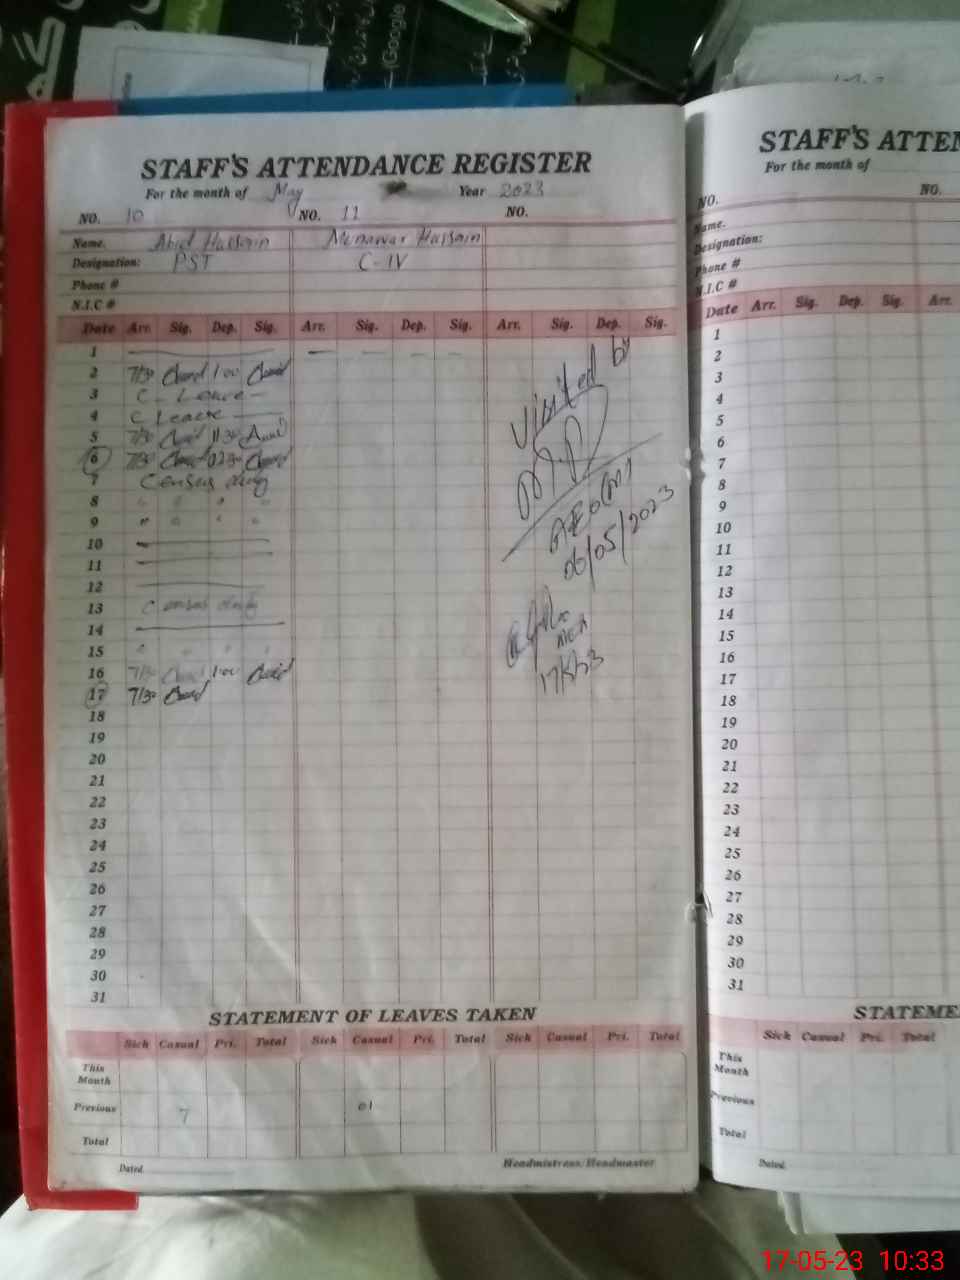 STAFF'S ATTENDANCE REGISTER
For the month of May Year 2023
NO. 10 NO. 11 NO.
Name. Abid Hussain Munawar Hussain
Designation: PST C-IV
Phone #
N.I.C #
Date Arr. Sig. Dep. Sig. Arr. Sig. Dep. Sig. Arr. Sig. Dep. Sig.
1
2 7/30 1:00
3 C - Leave -
4 C Leave
5 7/30 11:30
6 7/30
7 Census duty
8 " " " "
9 " " " "
10
11
12
13 Census duty
14
15 " " " "
16 7/30 1:00
17 7/30
18
19
20
21
22
23
24
25
26
27
28
29
30
31
Visited by
AEO(M)
06/05/2023
MEA
17/5/23
STATEMENT OF LEAVES TAKEN
Sick Casual Pri. Total Sick Casual Pri. Total Sick Casual Pri. Total
This Month
Previous 7 01
Total
Dated Headmistress/Headmaster
STAFF'S ATTEN
For the month of
NO. NO.
Name.
Designation:
Phone #
N.I.C #
Date Arr. Sig. Dep. Sig. Arr.
1
2
3
4
5
6
7
8
9
10
11
12
13
14
15
16
17
18
19
20
21
22
23
24
25
26
27
28
29
30
31
STATEME
Sick Casual Pri. Total
This Month
Previous
Total
Dated
17-05-23 10:33